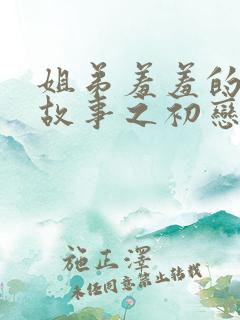 姐弟羞羞的
故事之初戀
施正澤
未经同意禁止转载